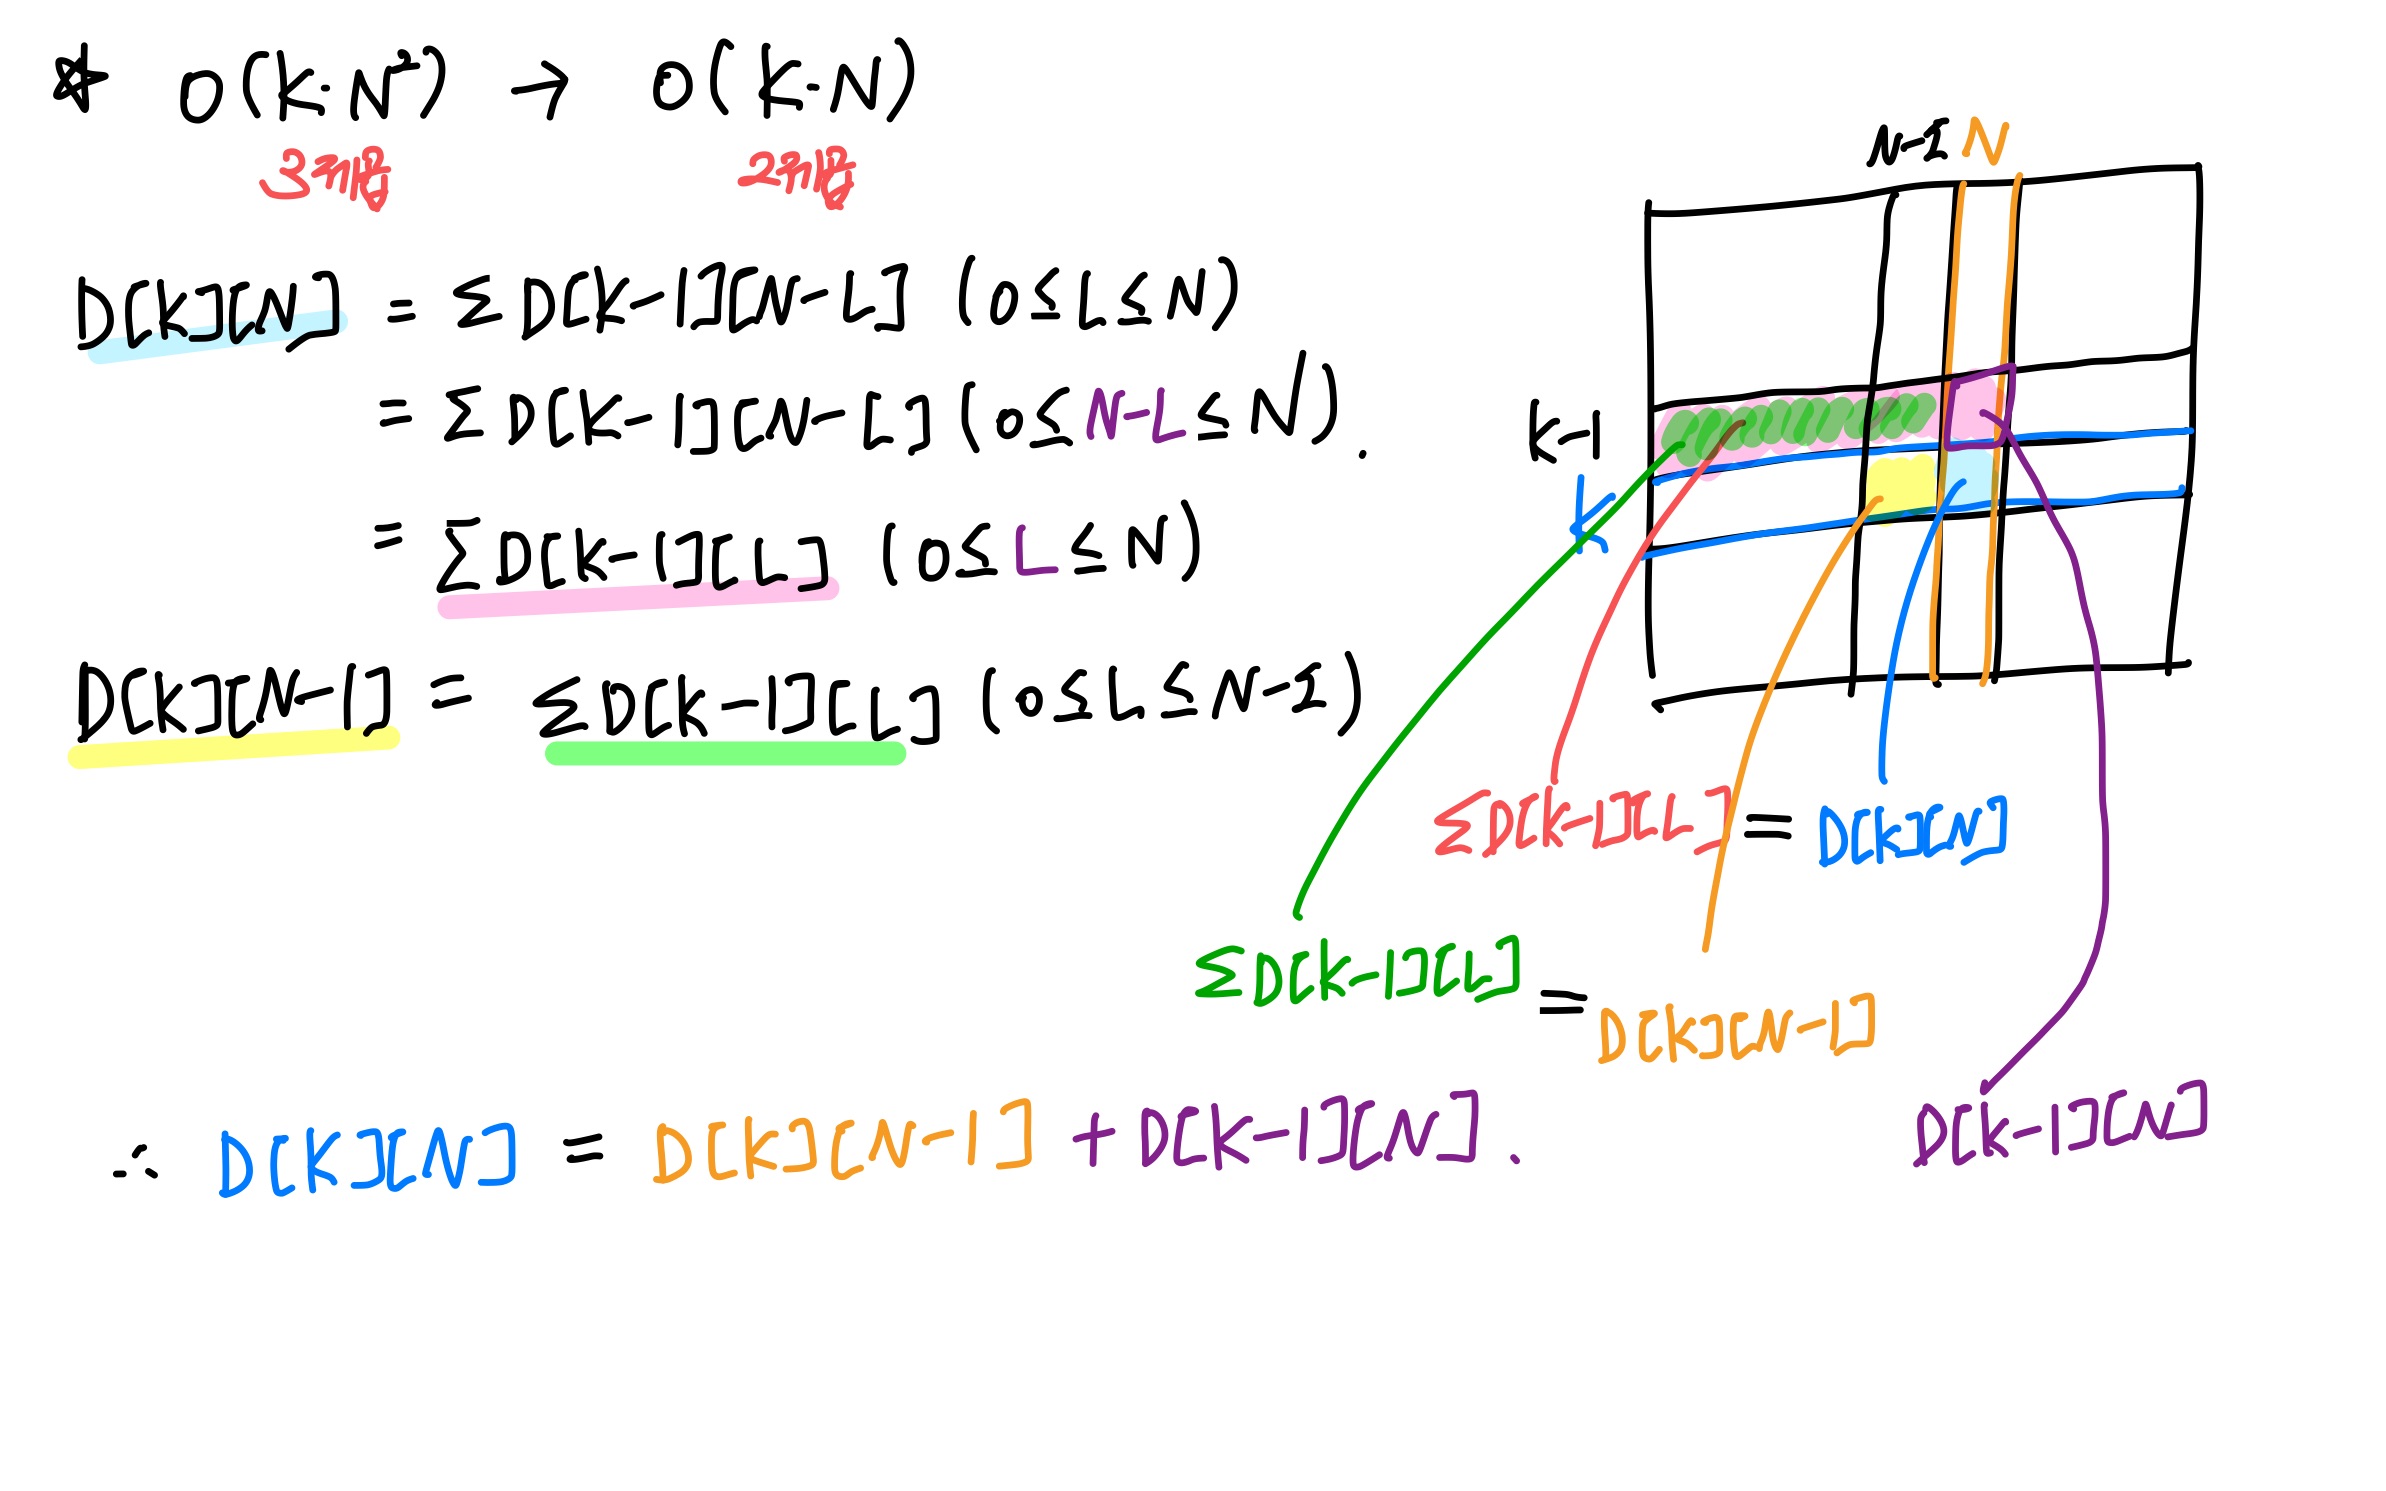 * O(K·N²) → O(K·N)
3개 2개
D[K][N] = Σ D[K-1][N-L] (0≤L≤N)
= Σ D[K-1][N-L] (0≤N-L≤N).
= ΣD[K-1][L] (0≤L≤N)
D[K][N-1] = ΣD[K-1][L] (0≤L≤N-1)
N-1 N
K-1
K
ΣD[K-1][L] = D[K][N]
ΣD[K-1][L] = D[K][N-1]
D[K-1][N]
∴ D[K][N] = D[K][N-1] + D[K-1][N].